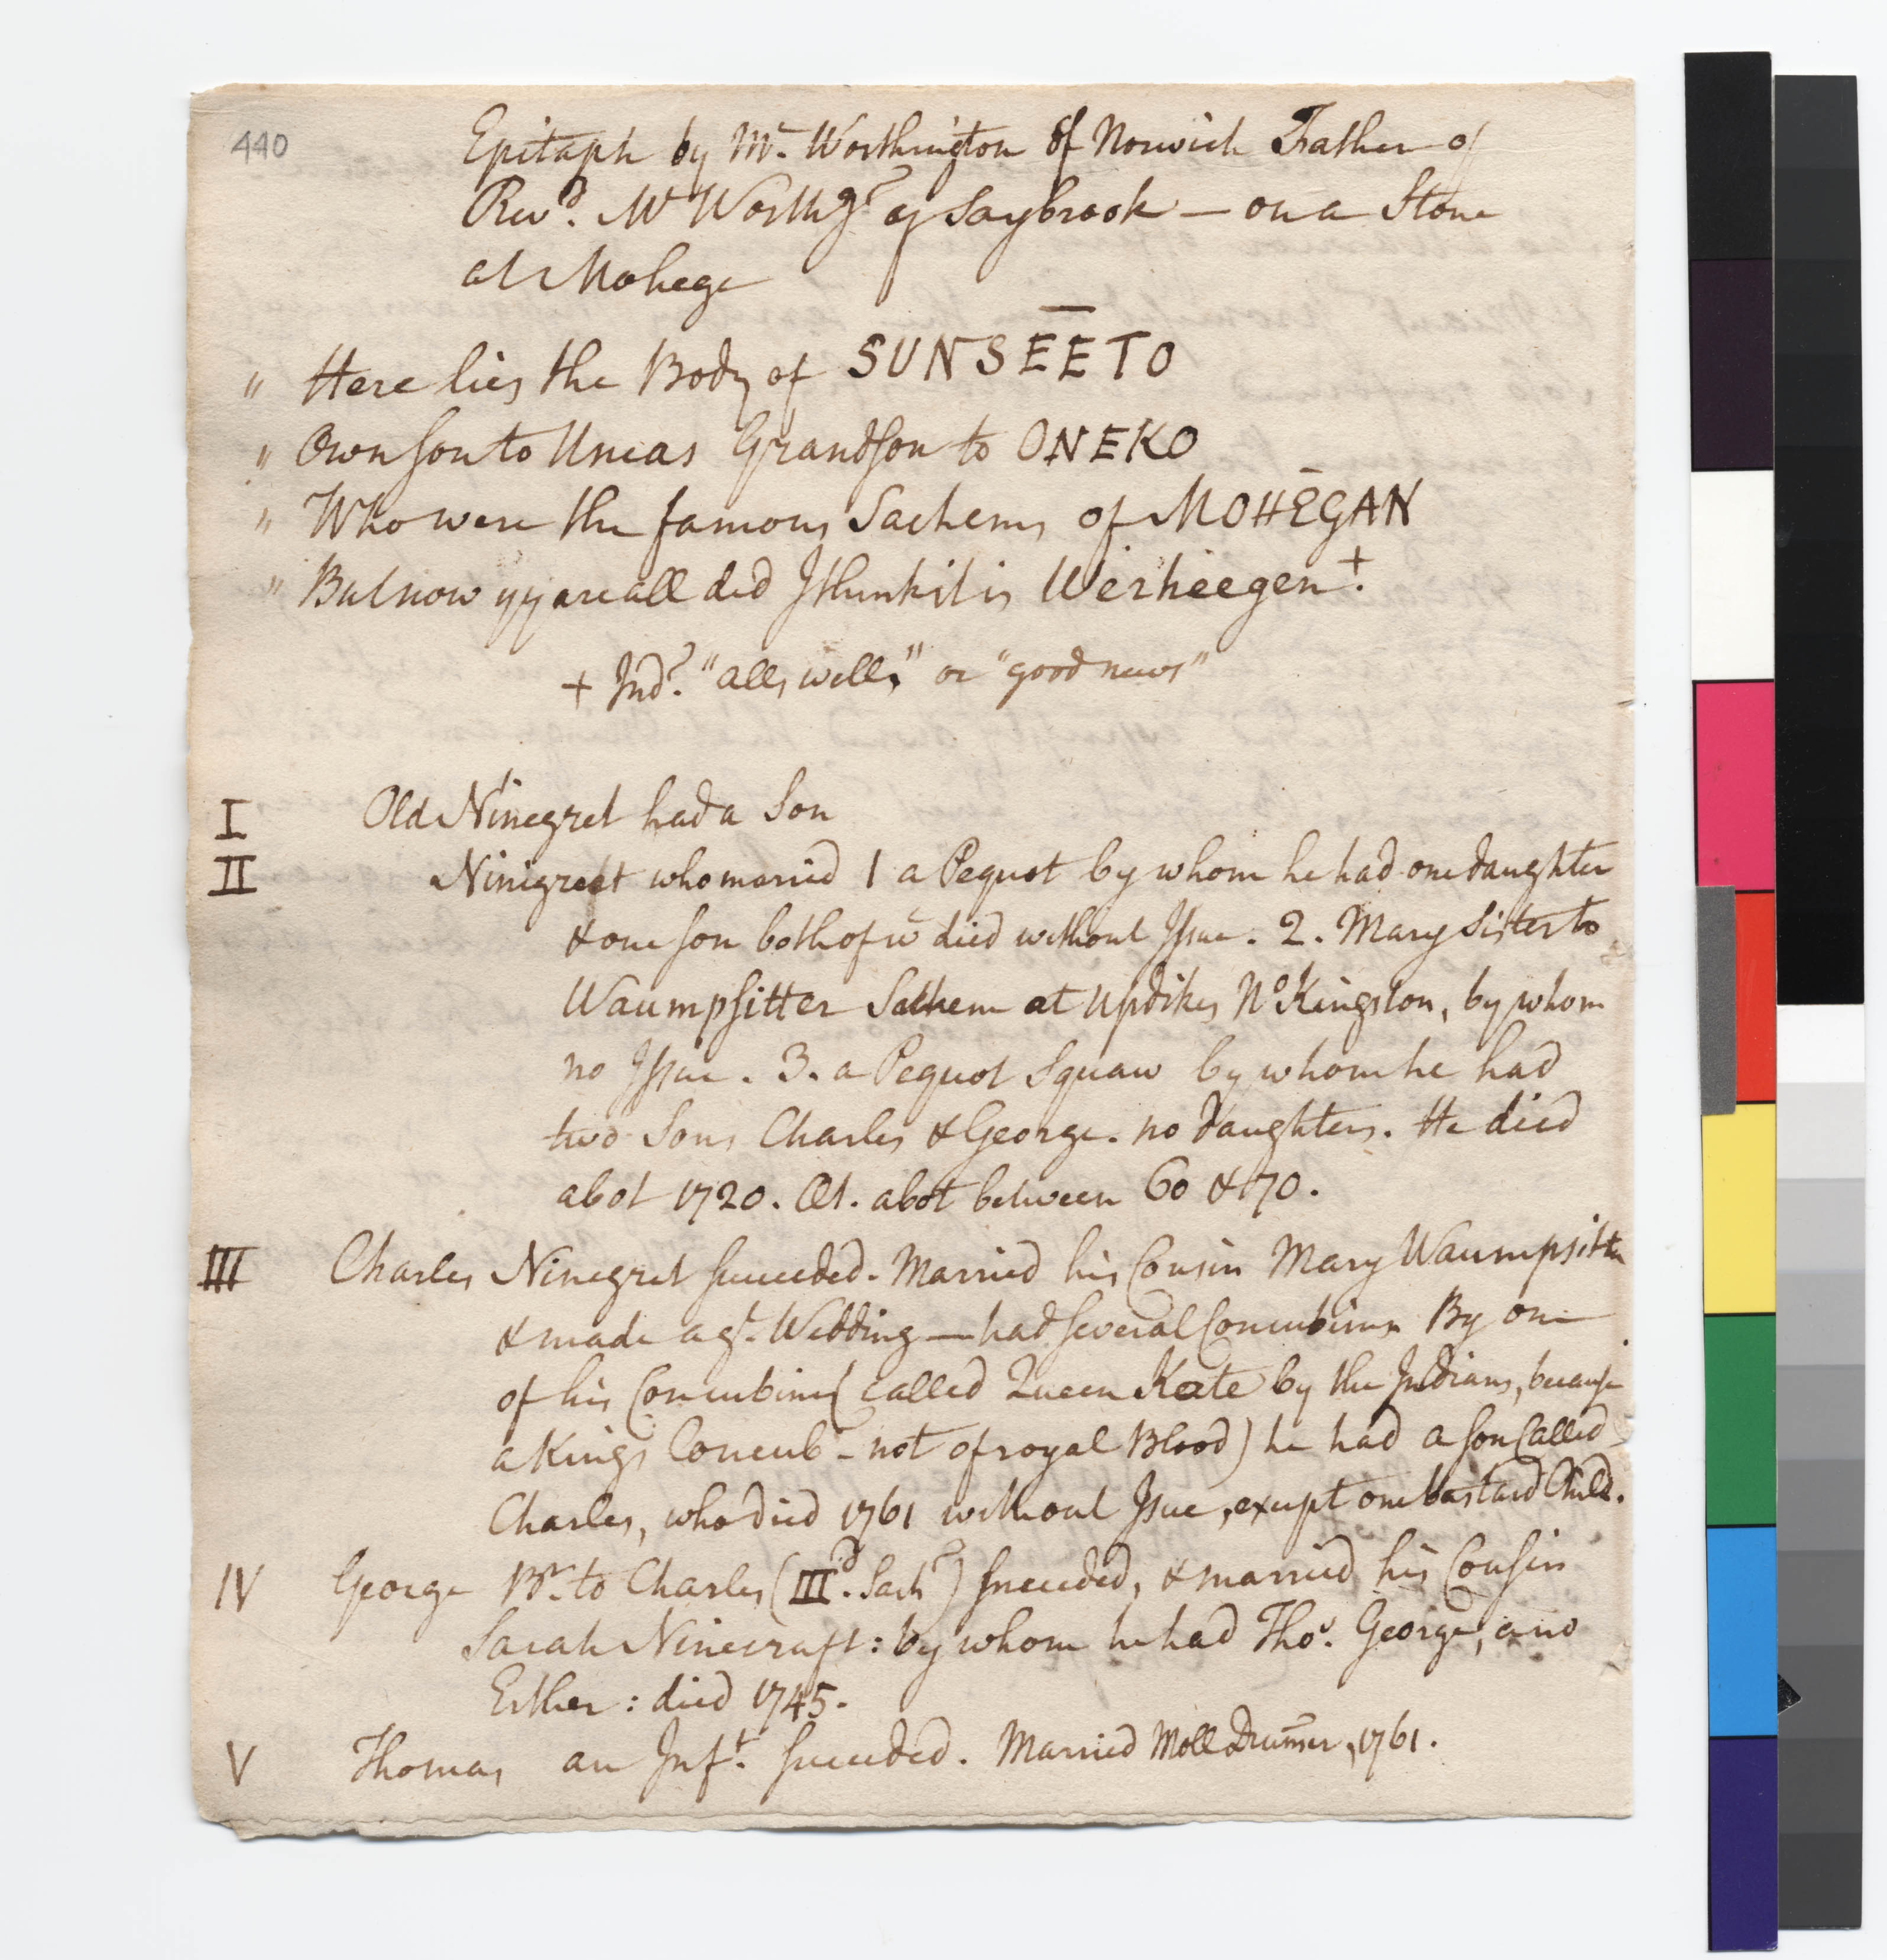 440
Epitaph by Mr. Worthington of Norwich Father of
Revd. Mr Worthgn of Saybrook — on a Stone
at Mohege
" Here lies the Body of SUNSĒĒTO
" Own son to Uncas Grandson to ONEKO
" Who were the famous Sachems of MOHĒGAN
" But now yy are all ded I think it is Werheegen +.
+ Indn. "alls well," or "good news"
I Old Ninegret had a Son
II Ninigret who married 1 a Pequot by whom he had one daughter
& one son both of wc died without Issue. 2. Mary Sister to
Waumpsitter Sachem at Updikes No Kingston, by whom
no Issue. 3. a Pequot Squaw by whom he had
two Sons Charles & George. no daughters. He died
abot 1720. Æt. abot between 60 & 70.
III Charles Ninegret succeeded. Married his Cousin Mary Waumpsitter
& made a gt. Wedding — had several Concubines By one
of his Concubines (called Queen Kate by the Indians, because
a Kings Concub - not of royal Blood) he had a son called
Charles, who died 1761 without Issue, except one bastard Child.
IV George Br. to Charles (IIId. Sach) succeeded, & married his Cousin
Sarah Ninecraft: by whom he had Thos. George, and
Esther: died 1745.
V Thomas an Inft. succeeded. Married Moll Drum̄er, 1761.